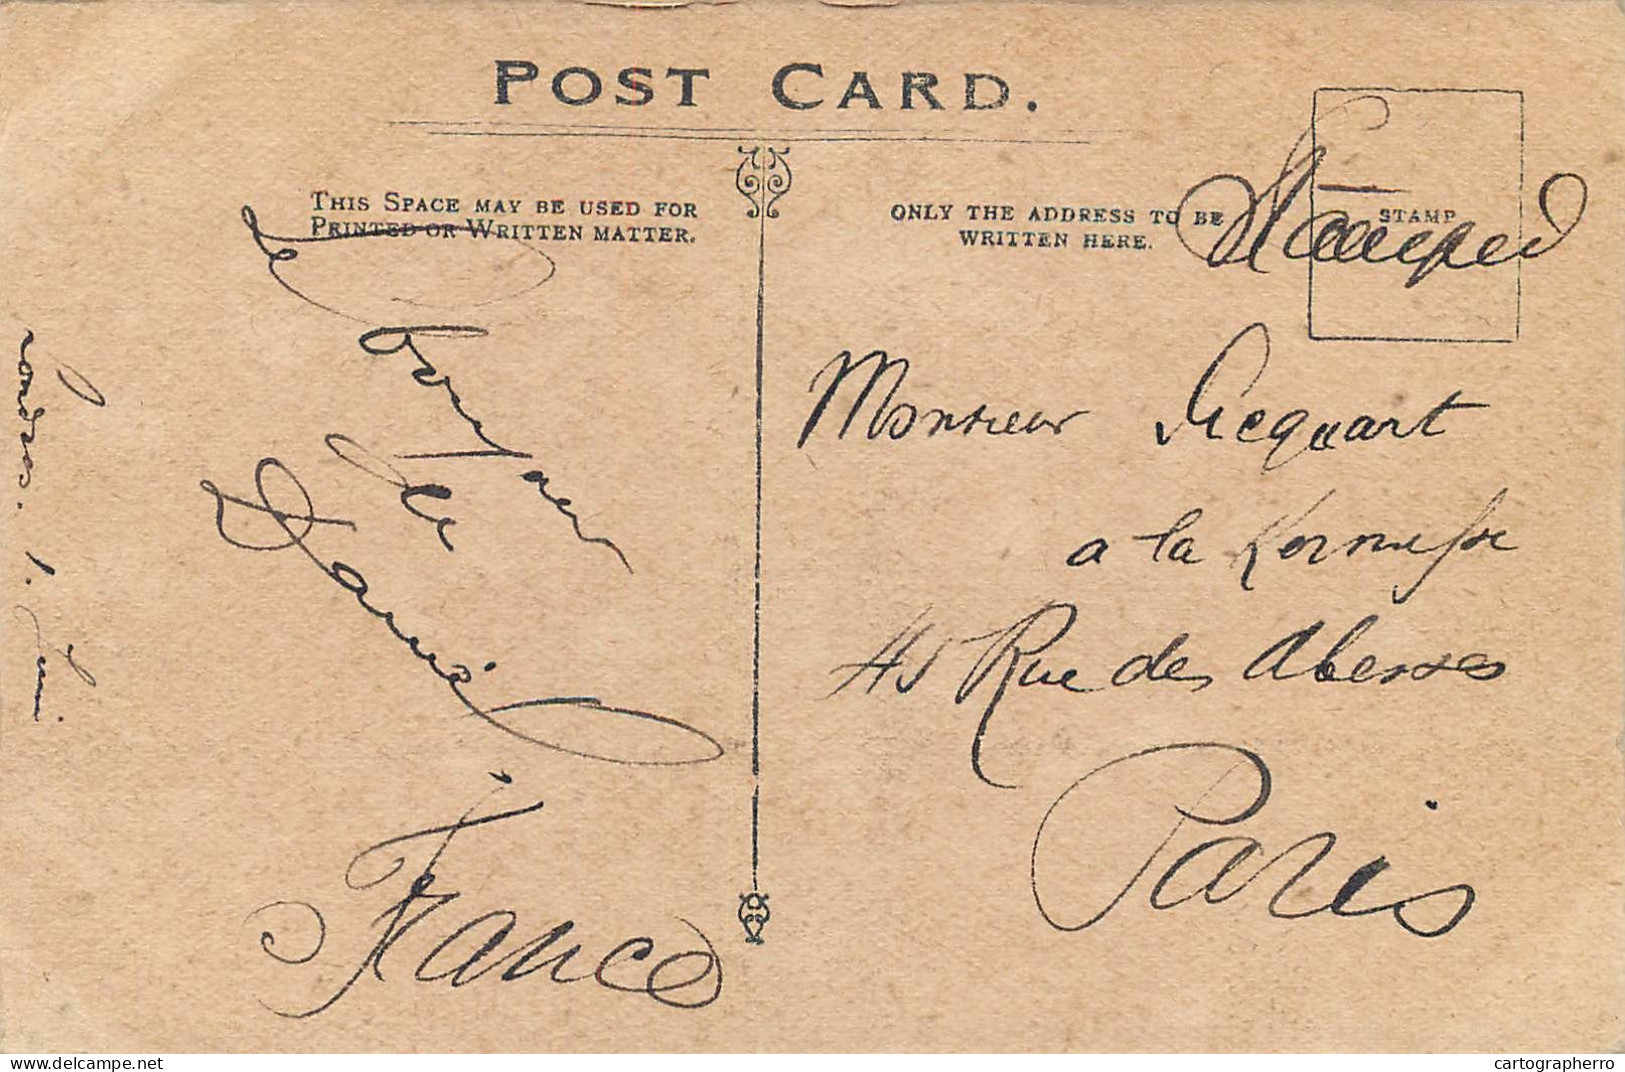 POST CARD.
THIS SPACE MAY BE USED FOR
PRINTED OR WRITTEN MATTER.
ONLY THE ADDRESS TO BE
WRITTEN HERE.
STAMP
Stamped
Londres. 1. Juin
Le bonjour
de
France
Monsieur Picquart
a la Kermesse
45 Rue des Abesses
Paris
delcampe.net
cartographerro